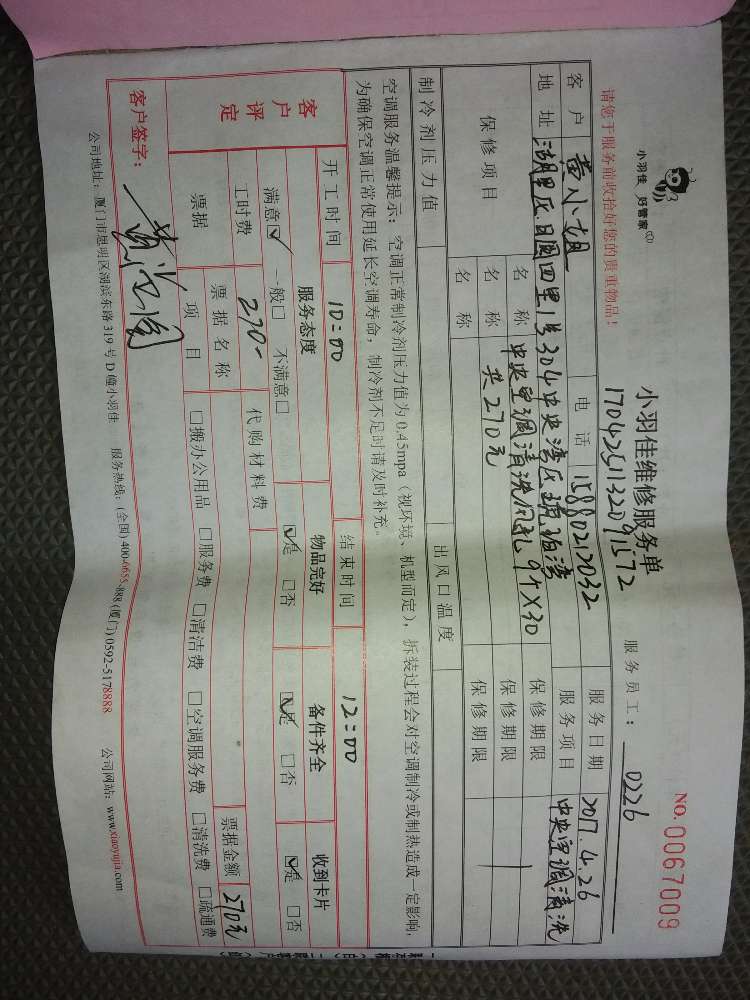 小羽佳 好管家
小羽佳维修服务单
NO. 0067009
1704251132091572
服务员工: 0226
请您于服务前收拾好您的贵重物品！
客户 黄小姐 电话 15880212032 服务日期 2017.4.26
地址 湖里区日圆四里1号304中央湾区琥珀湾 服务项目 中央空调清洗
保修项目 名称 中央空调清洗风机9个X30 保修期限
名称 共270元 保修期限
名称 保修期限
制冷剂压力值 出风口温度
空调服务温馨提示：空调正常制冷剂压力值为0.45mpa（视环境、机型而定），拆装过程会对空调制冷或制热造成一定影响，
为确保空调正常使用延长空调寿命，制冷剂不足时请及时补充。
开工时间 10:00 结束时间 12:00
客户评定 服务态度 物品完好 备件齐全 收到卡片
满意☑ 一般□ 不满意□ ☑是 □否 ☑是 □否 ☑是 □否
工时费 270- 代购材料费
票据 票据名称 票据金额 270元
项目 □搬办公用品 □服务费 □清洁费 □空调服务费 □清洗费 □疏通费
客户签字：
公司地址：厦门市思明区湖滨东路319号D幢小羽佳 服务热线：(全国)400-6655-888(厦门)0592-5178888 公司网站：www.xiaoyujia.com